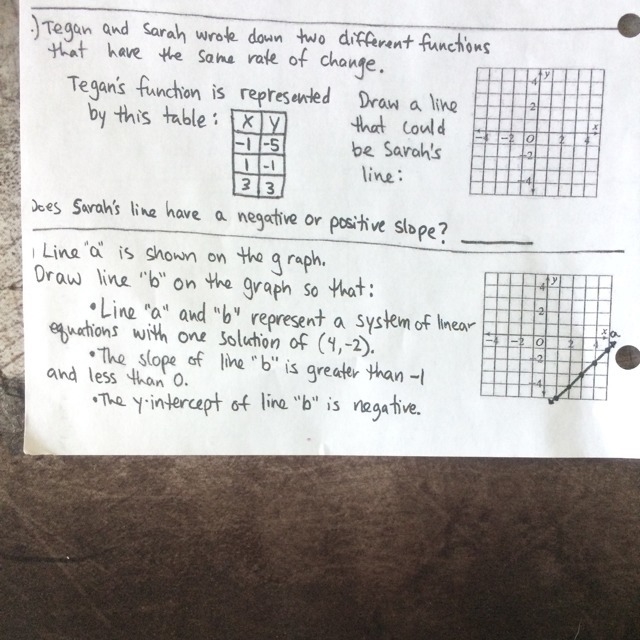 .) Tegan and Sarah wrote down two different functions
that have the same rate of change.
Tegan's function is represented
by this table:
x y
-1 -5
1 -1
3 3
Draw a line
that could
be Sarah's
line:
y
4
2
-4 -2 O 2 4 x
-2
-4
Does Sarah's line have a negative or positive slope? ______
Line "a" is shown on the graph.
Draw line "b" on the graph so that:
•Line "a" and "b" represent a system of linear
equations with one solution of (4,-2).
•The slope of line "b" is greater than -1
and less than 0.
•The y-intercept of line "b" is negative.
y
4
2
-4 -2 O 2 4 x a
-2
-4